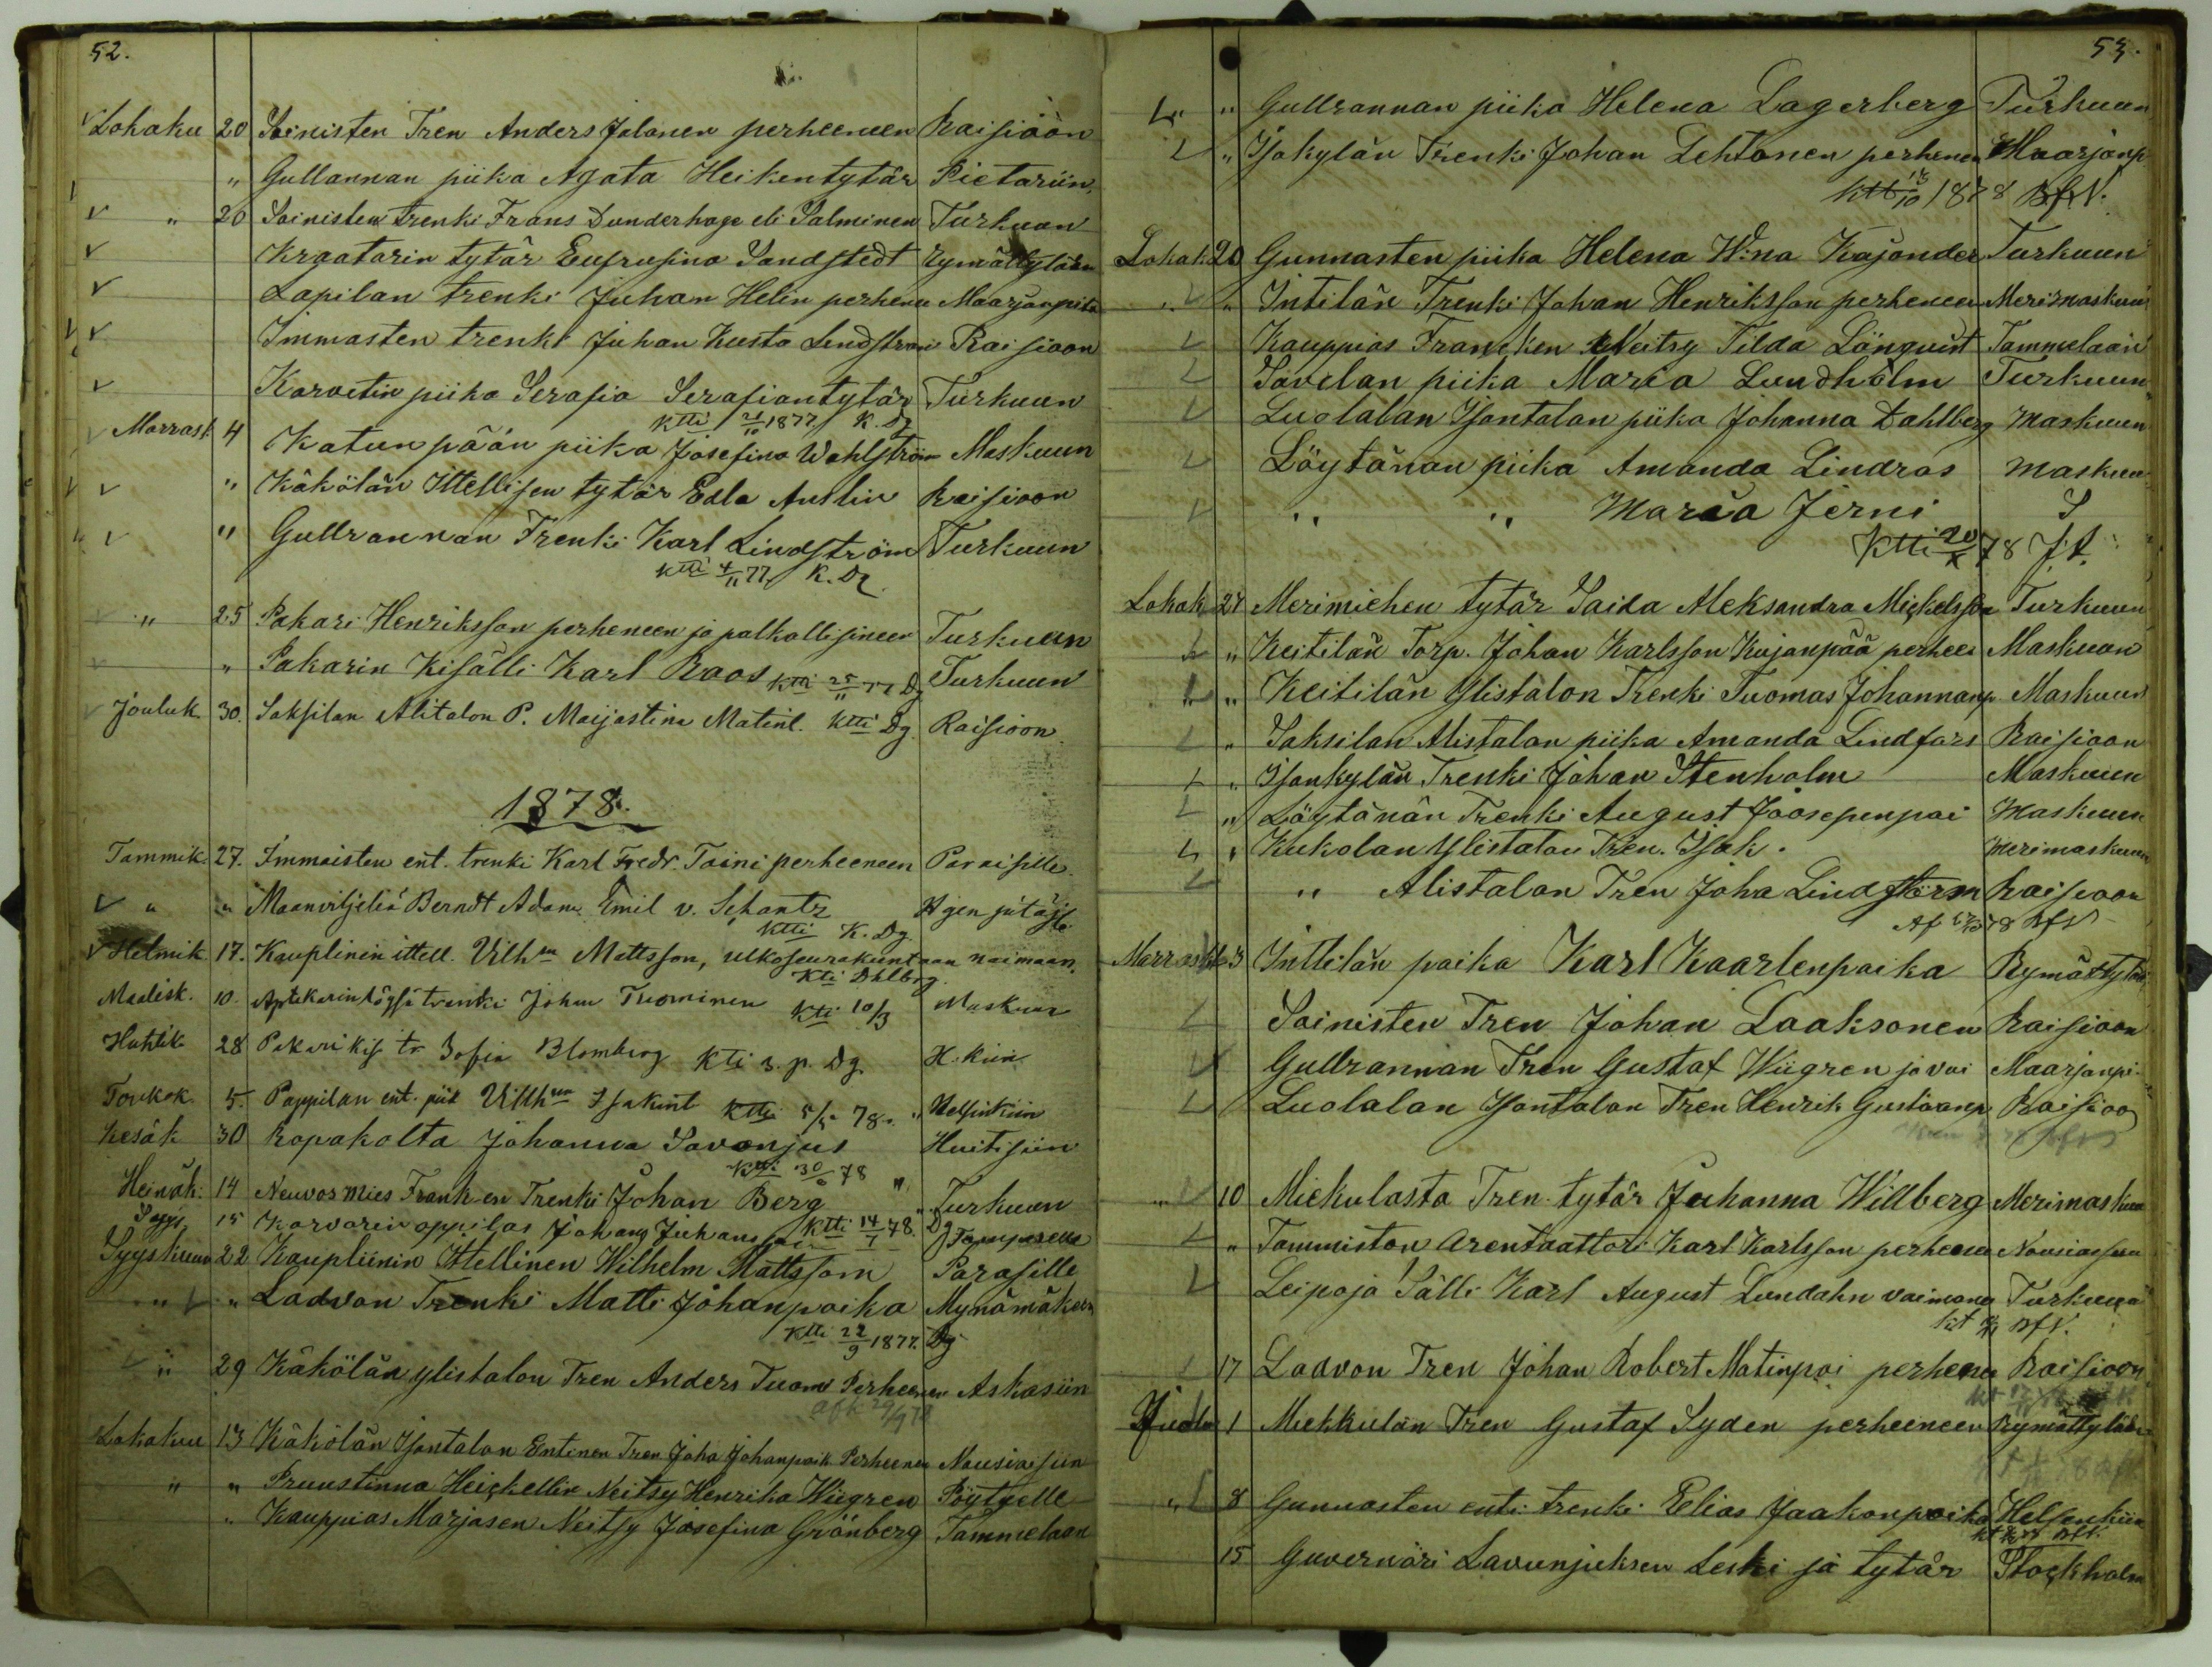 52.
Lokaku 20 Soinisten Tren Anders Jalonen perheeneen Raisioon
" Gullannan piika Agata Heikentytär Pietariin
" 20 Soinisten trenki Frans Dunderhage eli Salminen Turkuun
Kraatarin tytär Eufrusina Sandstedt Rymättylään
Lapilan trenki Juhan Helin perhenee Maarjanpit
Immasten trenki Juhan Kusta Lindström Raisioon
Karvetin piika Serafia Serafiantytär Turkuun
Ktti 21/10 1877 K. Dg
Marrask. 4 Katunpään piika Josefina Wahlström Maskuun
" Käkölän Ittellisen tytär Edla Antlin Raisioon
" Gullrannan Trenki Karl Lindström Turkuun
Ktti 4/11 77 K. Dg
" 25 Pakari Henriksson perheneen ja palkollisineen Turkuun
" Pakarin Kisälli Karl Roos Ktti 25/11 77 Dg Turkuun
Jouluk. 30. Saksilan Alitalon P. Maijastina Matint. Ktti Dg. Raisioon
1878.
Tammik. 27. Immaisten ent. trenki Karl Fredr. Toini perheeneen Paraisille.
" " Maanviljeliä Berndt Adam Emil v. Schantz
Ktti K. Dg.
Helmik. 17. Kauplinin ittell. Vilhm Mattsson, ulkoseurakuntaan naimaan.
Ktti Dhlbrg.
Maalisk. 10. trenki Johan Tuominen Ktti 10/3 Maskuun
Huhtik 28 Pakari kis. tr Sofia Blomberg Ktti s. p. Dg. H:kiin
Toukok. 5. Pappilan ent. piik Vilhma Isakint Ktti 5/5 78. " Helsinkiin
Kesäk 30 Ropakolta Johanna Savonjus Huitisiin
Ktti 30/6 78 "
Heinäk. 14 Neuvosmies Franken Trenki Johan Berg " Turkuun
Syys 15 Karvarin oppilas Johan Juhansson Ktti 14/7 78. Dg Tampereelle
Syyskuun 22 Kauplinin Ittellinen Wilhelm Mattsson Parasille
" " Ladvon Trenki Matti Johanpoika Mynämäkeen
Ktti 22/9 1877. Dg
" 29 Käkölän ylistalon Tren Anders Tuom Perheeneen Askaisiin
afk 29/9 78
Lokakuu 13 Käkölän Isontalon Entinen Tren Joha Johanpoik Perheenee Nousiaisiin
" " Pruustinna Heickellin Neitsy Henrika Wiigren Pöytyelle
" Kauppias Marjasen Neitsy Josefina Grönberg Tammelaan
53.
" " Gullrannan piika Helena Lagerberg Turkuun
" Isokylän Trenki Johan Lehtonen perhenen Maarjanp
Ktti 13/10 1878 BfN.
Lokak. 20 Gunnasten piika Helena W:na Kajander Turkuun
" " Intilän Trenki Johan Henriksson perheneen Merimaskuun
Kauppias Francken Neitsy Tilda Lönqvist Tammelaan
Savelan piika Maria Lundholm Turkuun
Luolalan Isontalon piika Johanna Dahlberg Maskuun
Löytänän piika Amanda Lindros Maskuun
" " Maria Jerni S
Ktti 20/X 78 J.A.
Lokak 27 Merimiehen tytär Saida Aleksandra Mickelsson Turkuun
" Keitilän Torp. Johan Karlsson Kujanpää perhee Maskuun
" " Keitilän Ylistalon Trenki Tuomas Johannanp. Maskuun
" Saksilan Alistalon piika Amanda Lindfors Raisioon
" Isonkylän Trenki Johan Stenholm Maskuun
" Löytänän Trenki August Joosepinpoi Maskuun
" Kukolan Ylistalon Tren. Isak. Merimaskuun
" Alistalon Tren Joha Lindström Raisioon
Af 27/10 78 BfN
Marrask 3 Inttilän poika Karl Kaarlenpoika Rymättylään
Soinisten Tren Johan Laaksonen Raisioon
Gullrannan Tren Gustaf Wiigren ja vai Maarjanpi.
Luolalan Isontalon Tren Henrik Gustaanp. Raisioo
" 10 Miekulasta Tren tytär Juhanna Willberg Merimaskuu
" Tammiston Arentaattori Karl Karlsson perheene Nousiaisiin
Leipoja Sälli Karl August Lundahn vaimona Turkuuna
BfN.
17 Ladvon Tren Johan Robert Matinpoi perheene Raisioon
Joulu 1 Miekkulan Tren Gustaf Syden perheeneen Rymättylään
" 8 Gunnasten enti. trenki Elias Jaakonpoika Helsinkiin
15 Guvernöri Lavunjuksen Leski ja tytär Stockholm